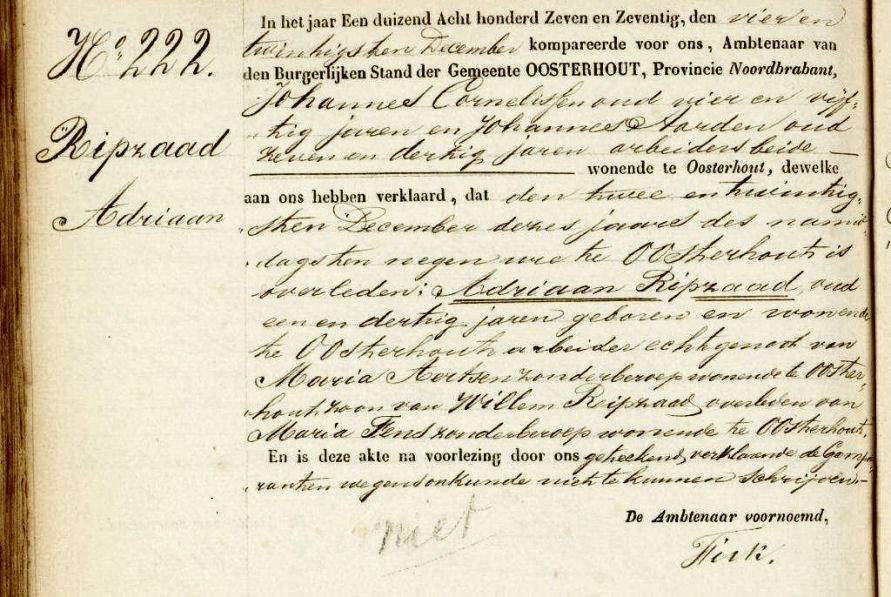 No. 222.
Ripzaad
Adriaan
In het jaar Een duizend Acht honderd Zeven en Zeventig, den vier en
twintigsten December kompareerde voor ons, Ambtenaar van
den Burgerlijken Stand der Gemeente OOSTERHOUT, Provincie Noordbrabant,
Johannes Cornelissen oud vier en vijf-
tig jaren en Johannes Aarden oud
zeven en dertig jaren arbeiders beide
wonende te Oosterhout, dewelke
aan ons hebben verklaard, dat den twee en twintig-
sten December dezes jaars des namid-
dags ten negen ure te Oosterhout is
overleden: Adriaan Ripzaad, oud
een en dertig jaren geboren en wonende
te Oosterhout arbeider echtgenoot van
Maria Aertsen zonder beroep wonende te Ooster-
hout, zoon van Willem Ripzaad, overleden van
Maria Fens zonder beroep wonende te Oosterhout.
En is deze akte na voorlezing door ons geteekend, verklarende de Compa-
ranten wegens onkunde niet te kunnen schrijven.-
niet
De Ambtenaar voornoemd,